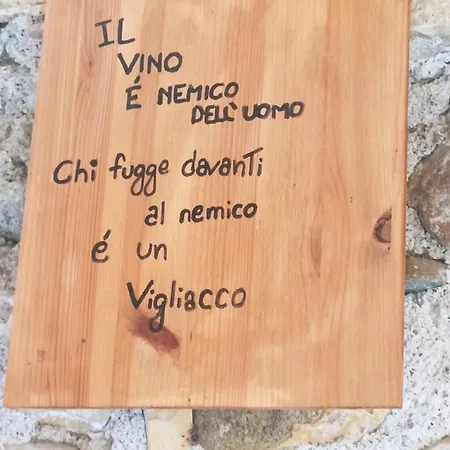 IL
VINO
É NEMICO
DELL'UOMO
Chi fugge davanti
al nemico
é un
Vigliacco